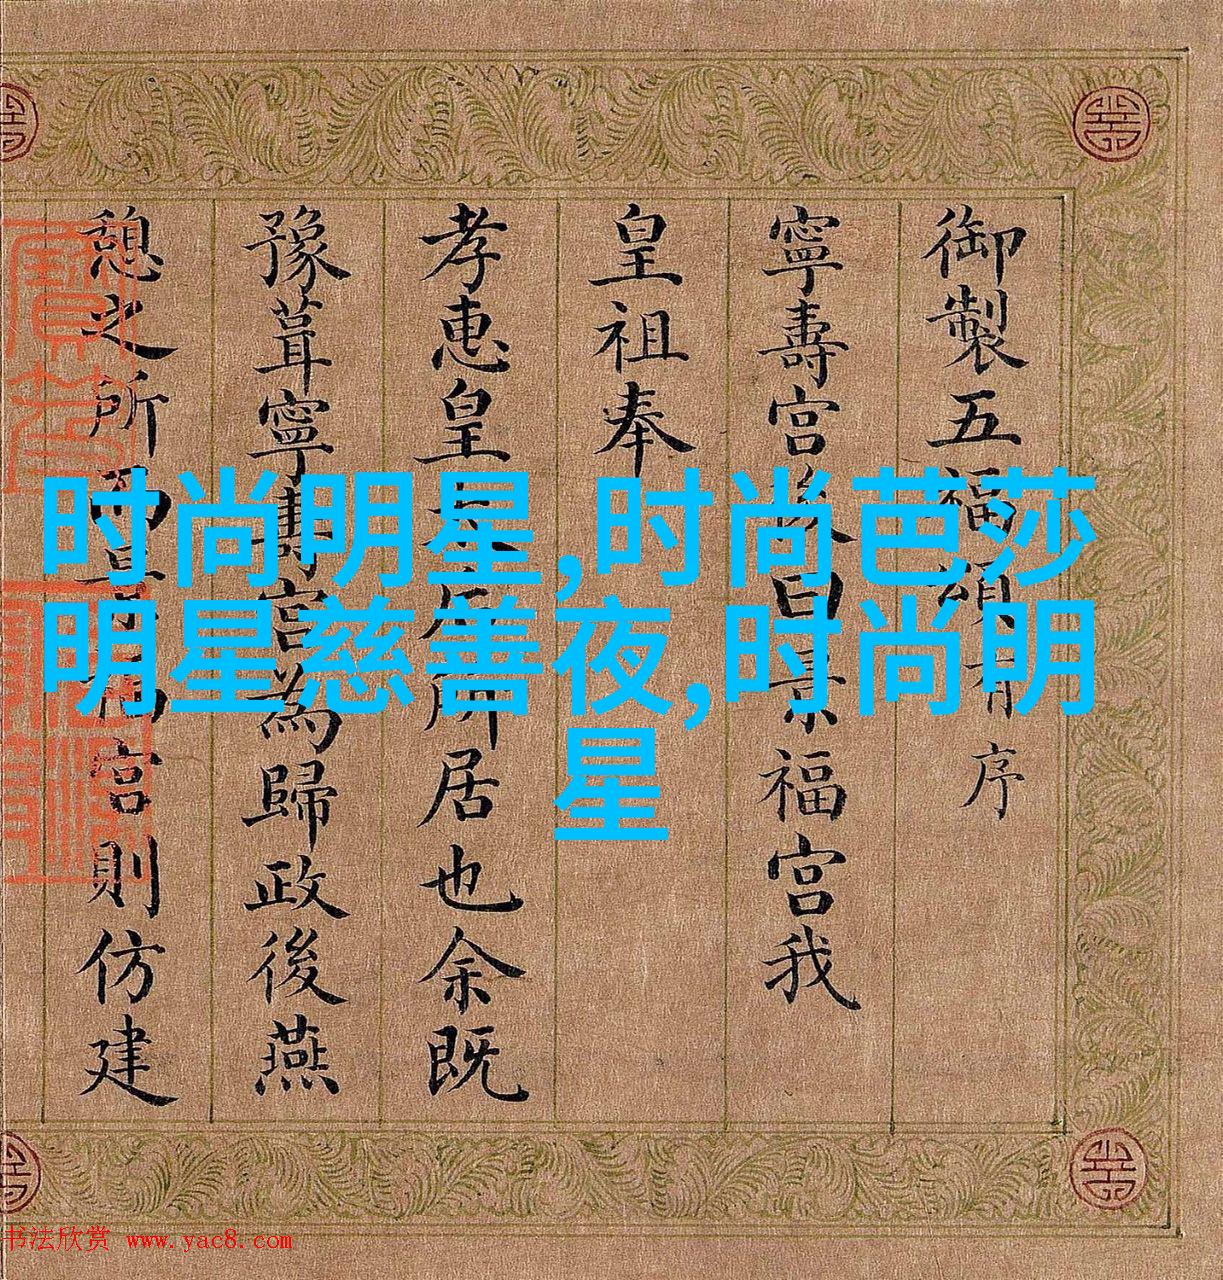 御製五福頌有序
寧壽宮後曰景福宮我
皇祖奉
孝惠皇太后所居也余既
豫葺寧壽宮為歸政後燕
憩之所而福宮則仿建
时尚明星,时尚芭莎
明星慈善夜,时尚明
星
书法欣赏 www.yac8.com